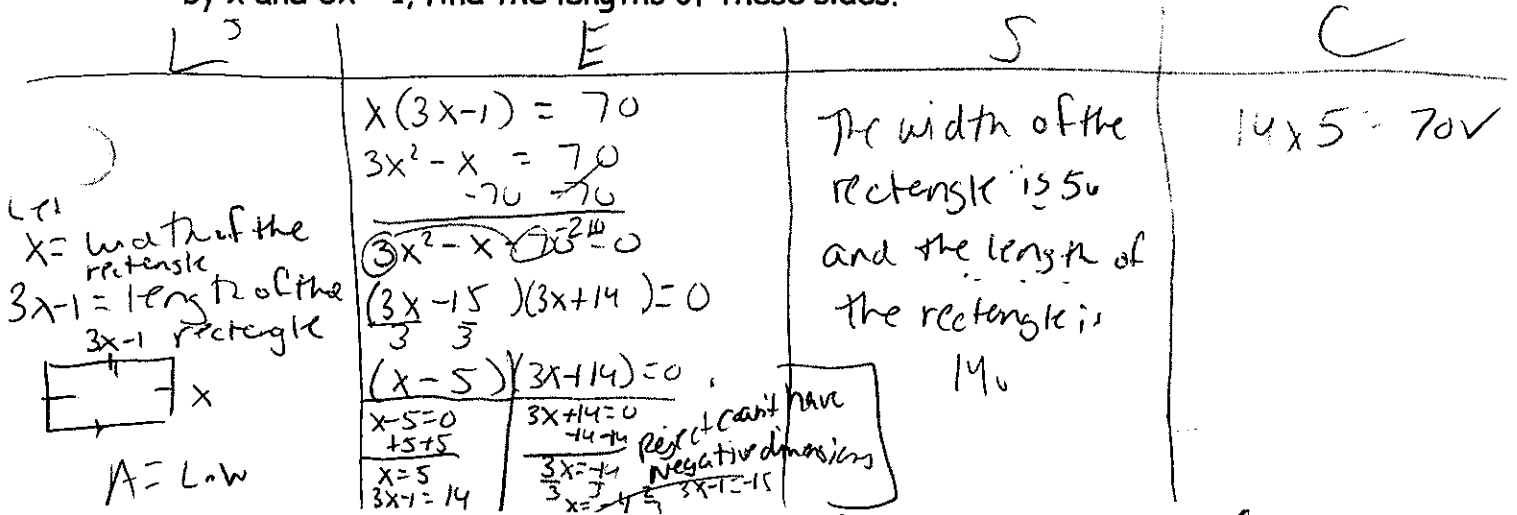 by x and 3x - 1, find the lengths of these sides.
L E S C
Let
x = width of the
rectangle
3x-1 = length of the
rectangle
3x-1
x
A = L·W
x(3x-1) = 70
3x² - x = 70
-70 -70
3x² - x - 70 = 0
-210
(3x -15)(3x+14) = 0
3 3
(x - 5)(3x+14) = 0
x-5=0
+5+5
x=5
3x-1=14
3x+14=0
-14 -14
3x=-14
3 3
x=-4 2/3
3x-1=-15
Reject can't have
Negative dimensions
The width of the
rectangle is 5u
and the length of
the rectangle is
14u
14 x 5 = 70✓